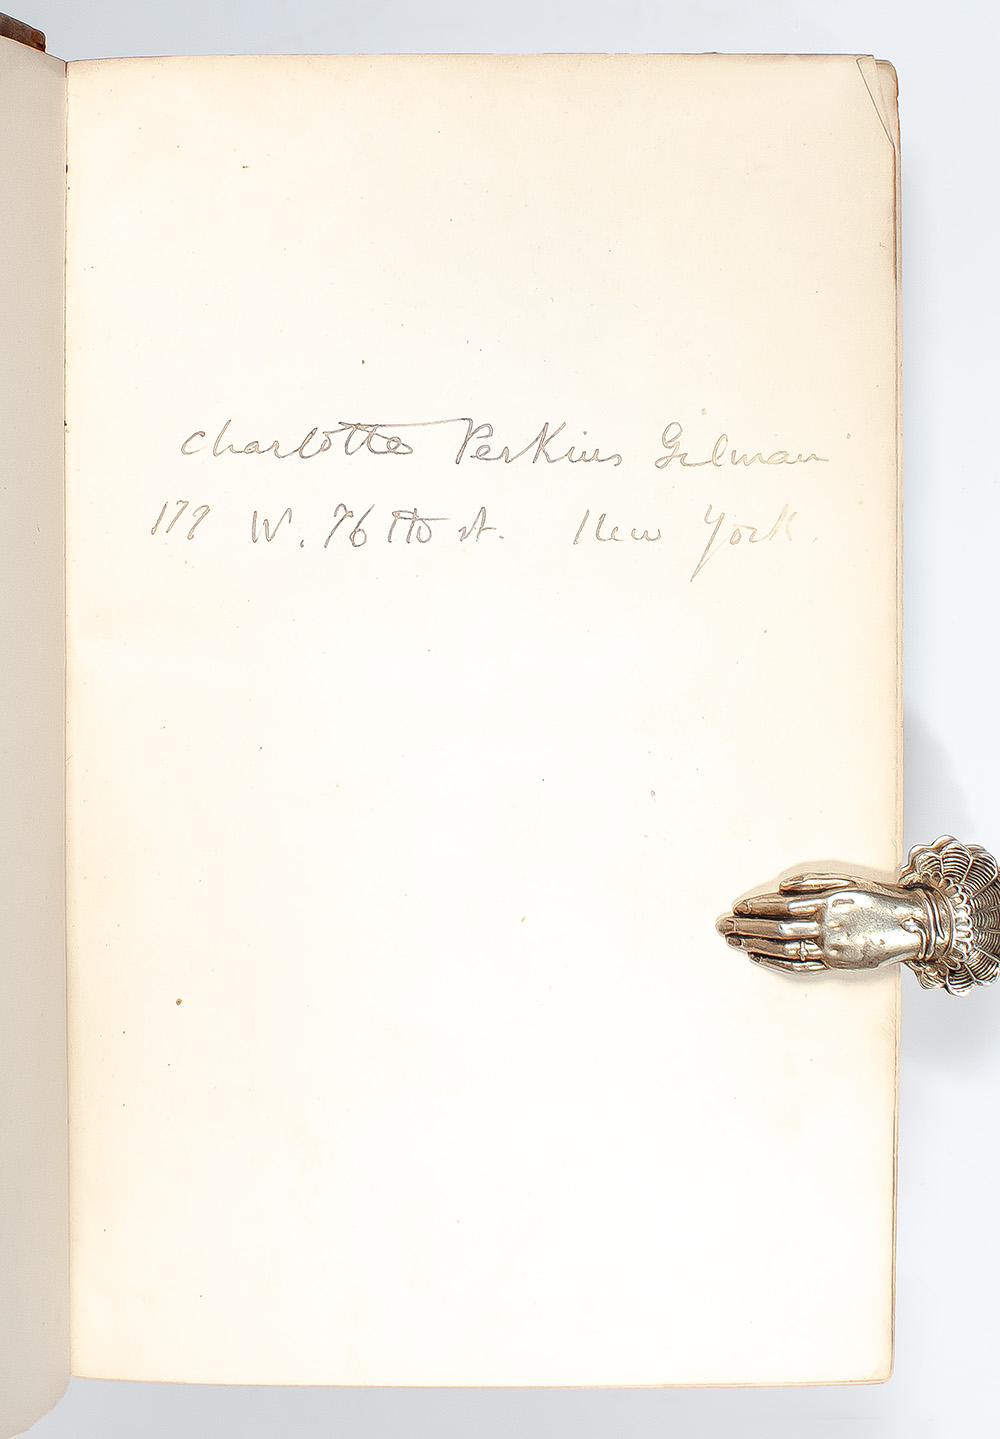 Charlotte Perkins Gilman
179 W. 76th st. New York.